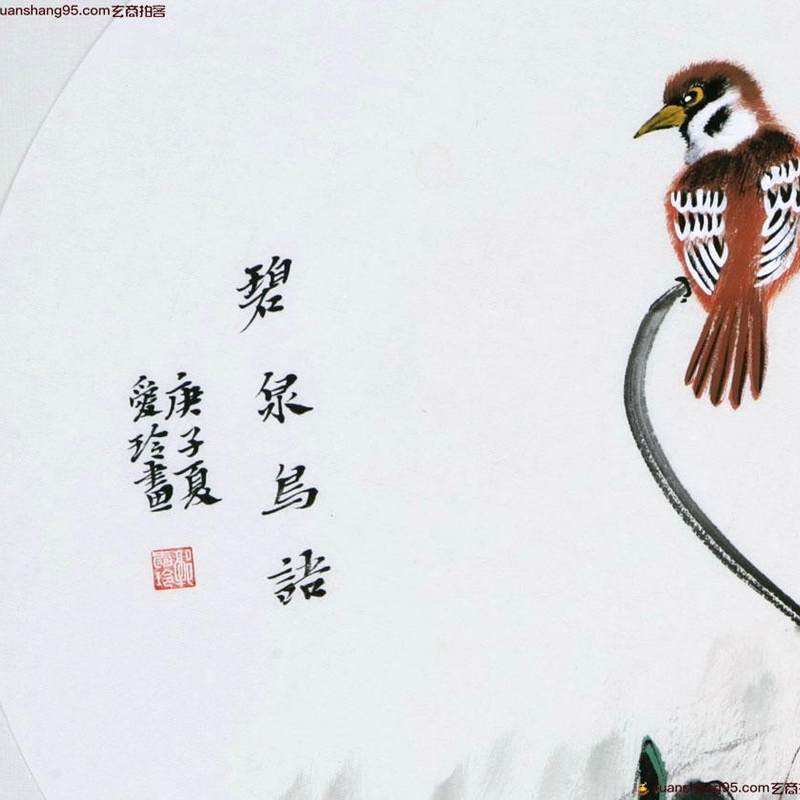 uanshang95.com玄商拍客
碧泉鳥語
庚子夏
愛玲畫
xuanshang95.com玄商拍